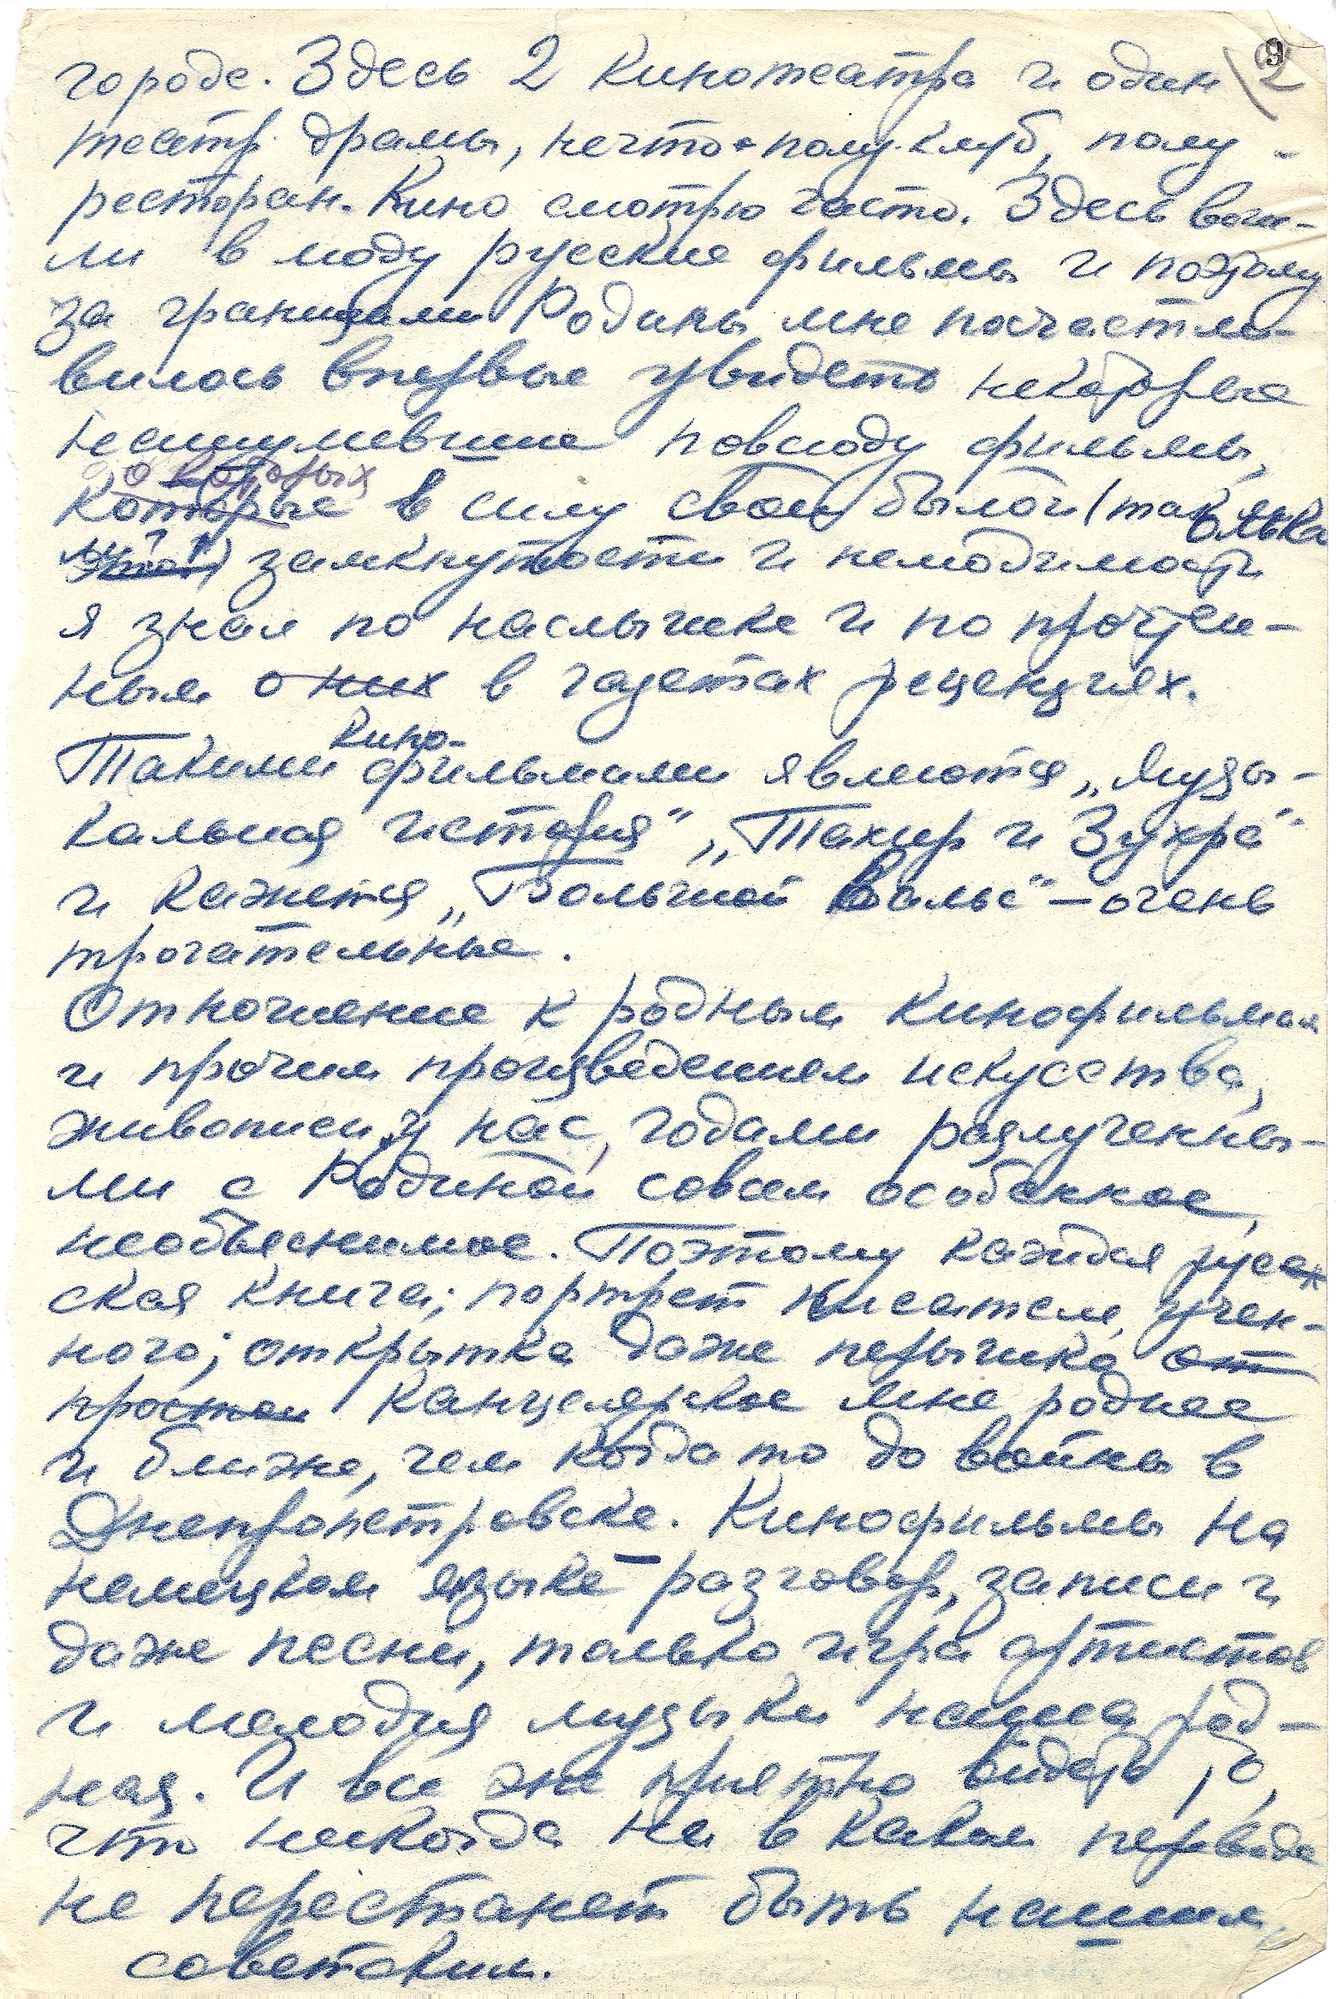 9
2
городе. Здесь 2 кинотеатра и один
театр драмы, нечто полу-клуб, полу-
ресторан. Кино смотрю часто. Здесь вош-
ли в моду русские фильмы и поэтому
за границами Родины мне посчастли-
вилось впервые увидеть некоторые
нашумевшие повсюду фильмы,
о которых
которые в силу своей былой (только
ли?) замкнутости и нелюдимости
я знал по наслышке и по прочтен-
ным о них в газетах рецензиях.
кино-
Такими фильмами являются „Музы-
кальная история" „Тахир и Зухра"
и кажется „Большой вальс" – очень
трогательные.
Отношение к родным кинофильмам
и прочим произведениям искусства,
живописи у нас, годами разлученны-
ми с Родиной совсем особенное,
необъяснимое. Поэтому каждая рус-
ская книга; портрет писателя, учен-
ного; открытка даже перышко от
простое канцелярское мне роднее
и ближе, чем когда то до войны в
Днепропетровске. Кинофильмы на
немецком языке – разговор, записи и
даже песни, только игра артистов
и мелодия музыки наша род-
ная. И все же приятно видеть то,
что никогда ни в каком переводе
не перестанет быть нашим,
советским.